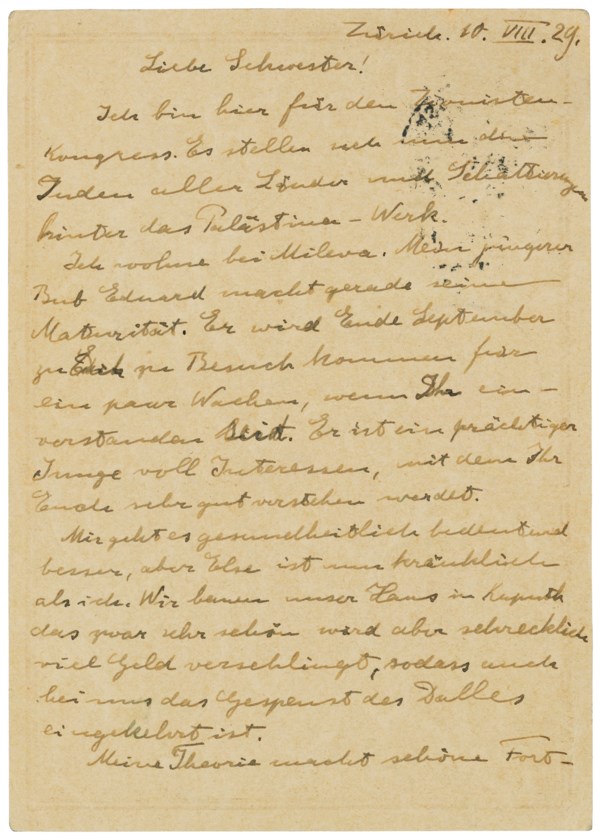 Zürich. 10. VIII. 29.
Liebe Schwester!
Ich bin hier für den Zionisten-
Kongress. Es stellen sich nun die
Juden aller Länder und Schattierungen
hinter das Palästina-Werk.
Ich wohne bei Mileva. Mein jüngerer
Bub Eduard macht gerade seine
Maturität. Er wird Ende September
zu Euch zu Besuch kommen für
ein paar Wochen, wenn Ihr ein-
verstanden seid. Er ist ein prächtiger
Junge voll Interessen, mit dem Ihr
Euch sehr gut verstehen werdet.
Mir geht es gesundheitlich bedeutend
besser, aber Else ist nun kränklich
als ich. Wir bauen unser Haus in Kaputh
das zwar sehr schön wird aber schrecklich
viel Geld verschlingt, sodass auch
bei uns das Gespenst des Dalles
eingekehrt ist.
Meine Theorie macht schöne Fort-